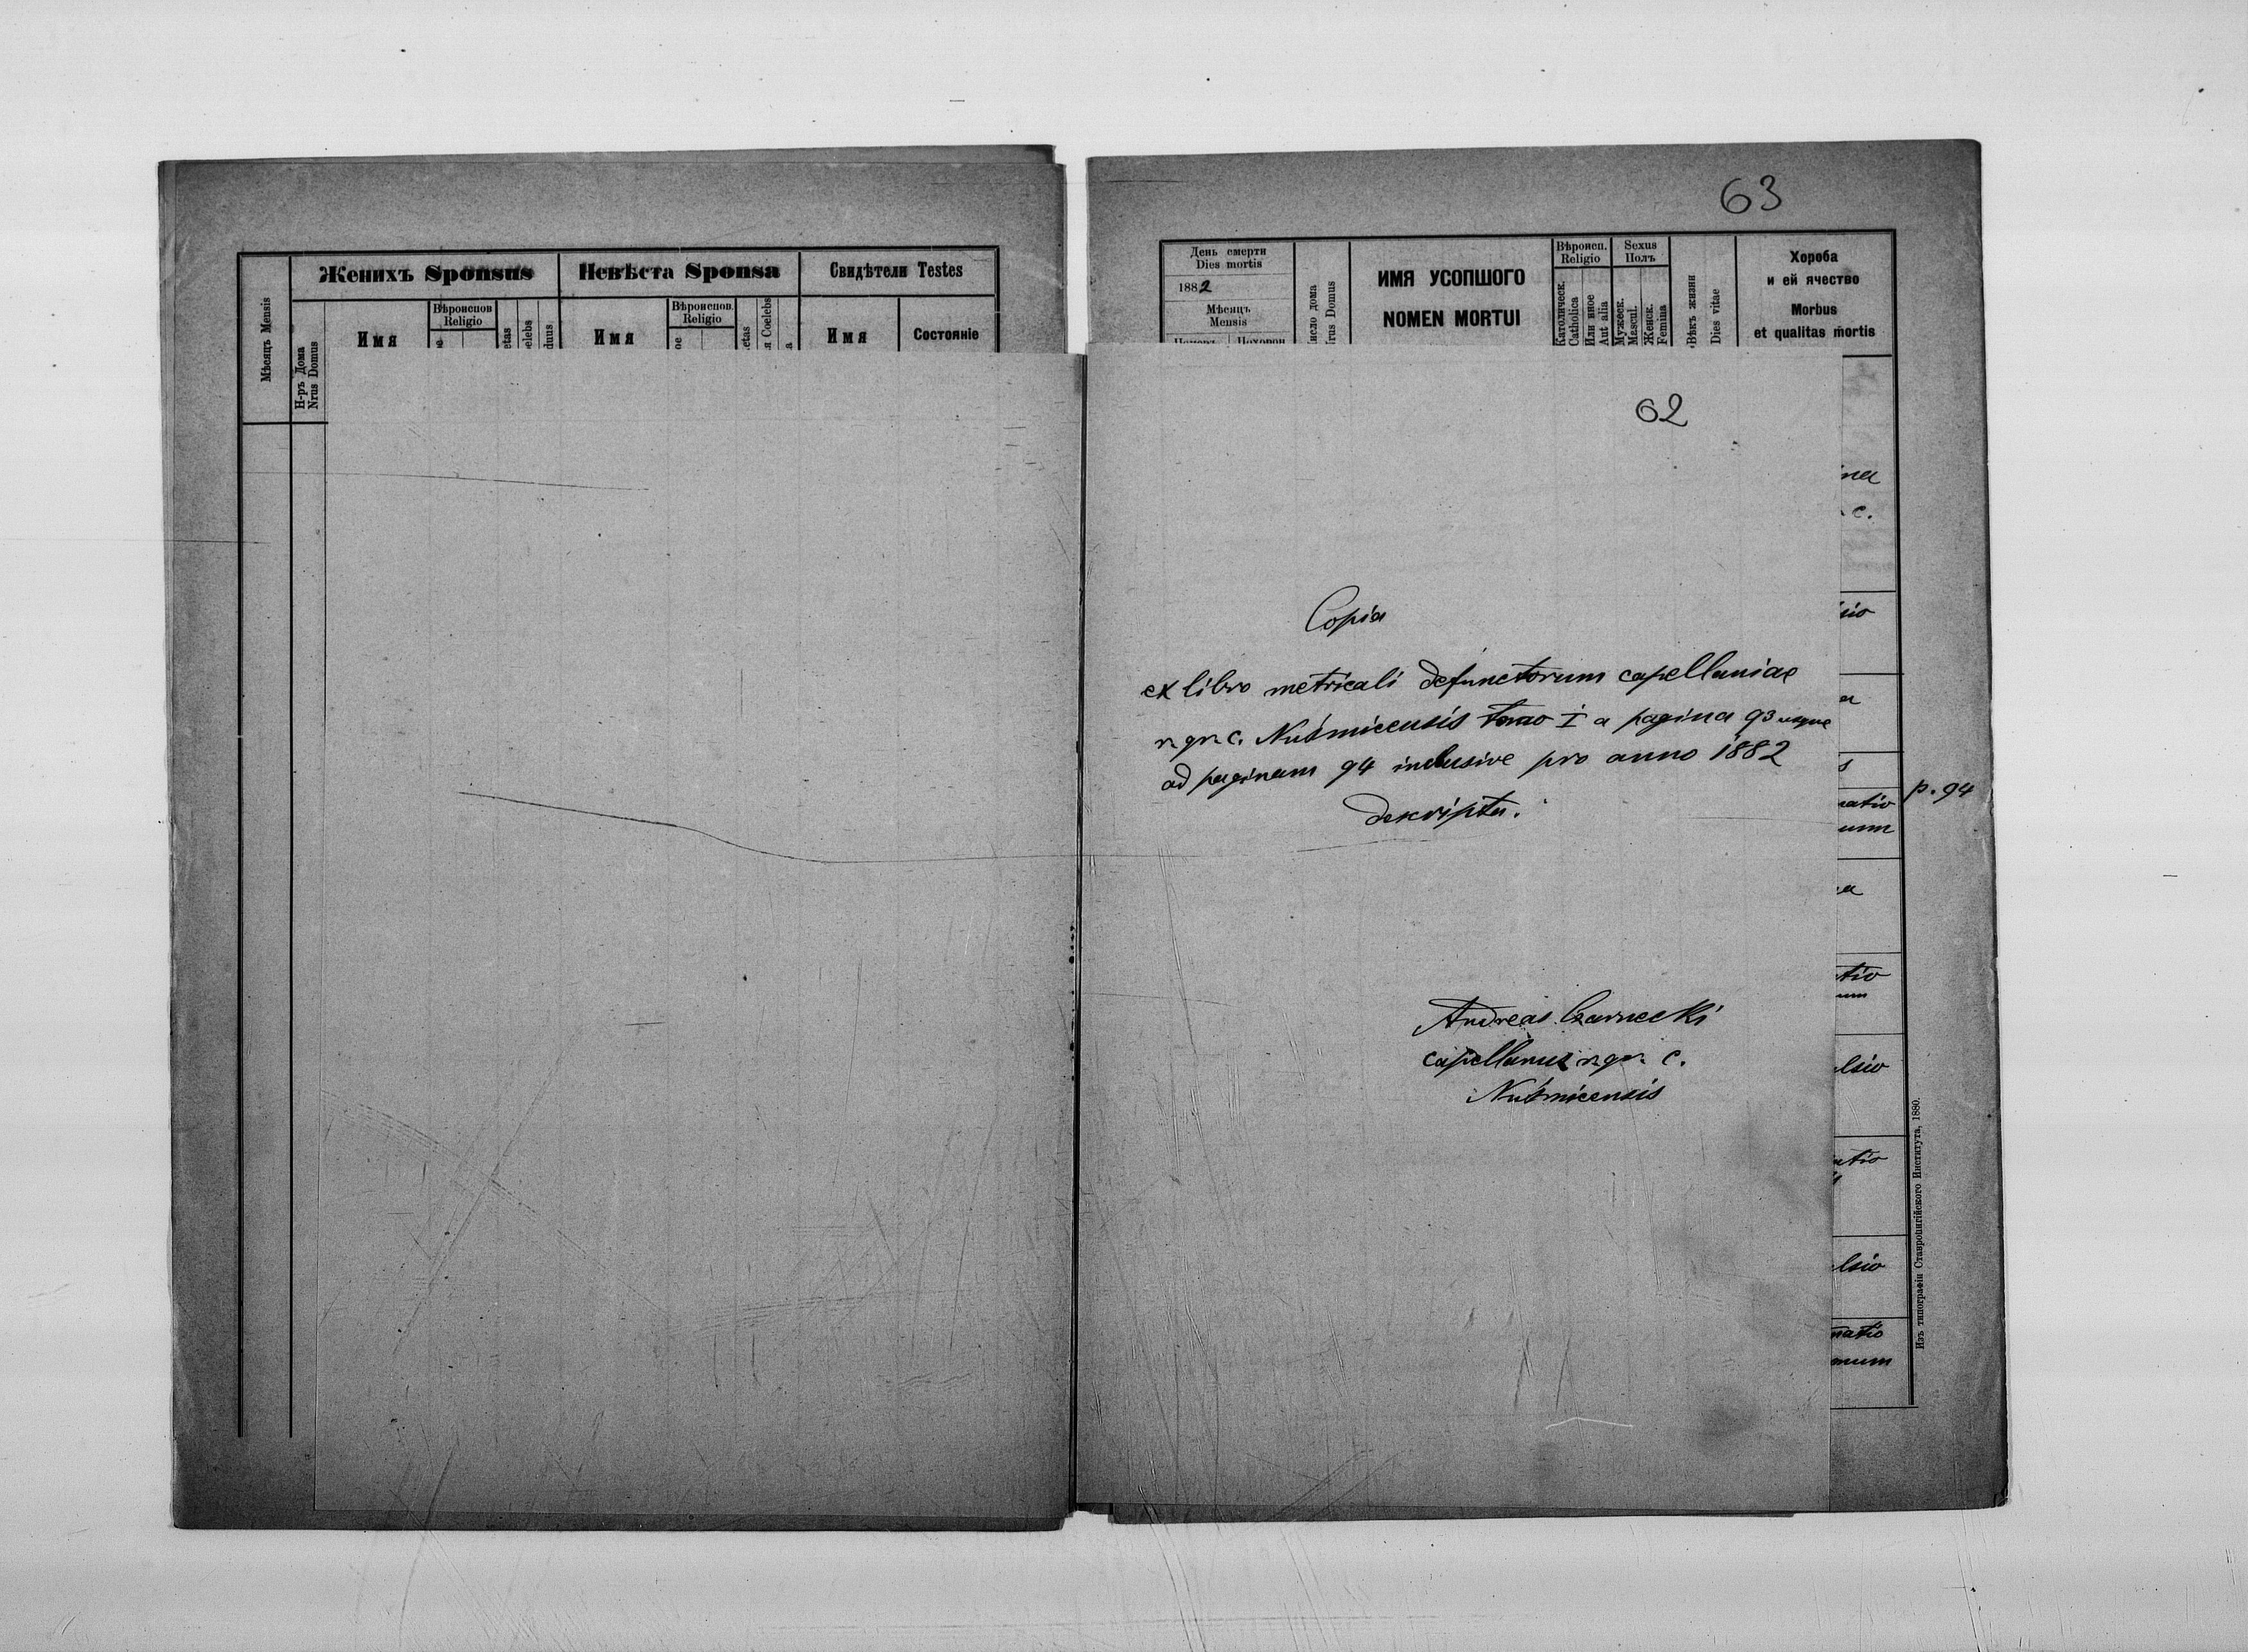 Мѣсяцъ Mensis
Н-ръ Дома
Nrus Domus
Женихъ Sponsus
Невѣста Sponsa
Свидѣтели Testes
Имя
Вѣроиспов
Religio
Имя
Вѣроиспов.
Religio
Имя
Состояніе
63
День смерти
Dies mortis
1882
Мѣсяцъ
Mensis
ИМЯ УСОПШОГО
NOMEN MORTUI
Вѣроисп.
Religio
Католическ.
Catholica
Или иное
Aut alia
Sexus
Полъ
Мужеск.
Mascul.
Женск.
Femina
Вѣкъ жизни
Dies vitae
Хороба
и ей ячество
Morbus
et qualitas mortis
62
Copia
ex libro metricali defunctorum capellaniae
r. gr. c. Nuśmicensis tomo I a pagina 93 usque
ad paginam 94 inclusive pro anno 1882
descripta.
Andreas Czarnecki
capellanus r. gr. c.
Nuśmicensis
p. 94
Изъ типографіи Ставропигійского Института, 1880.